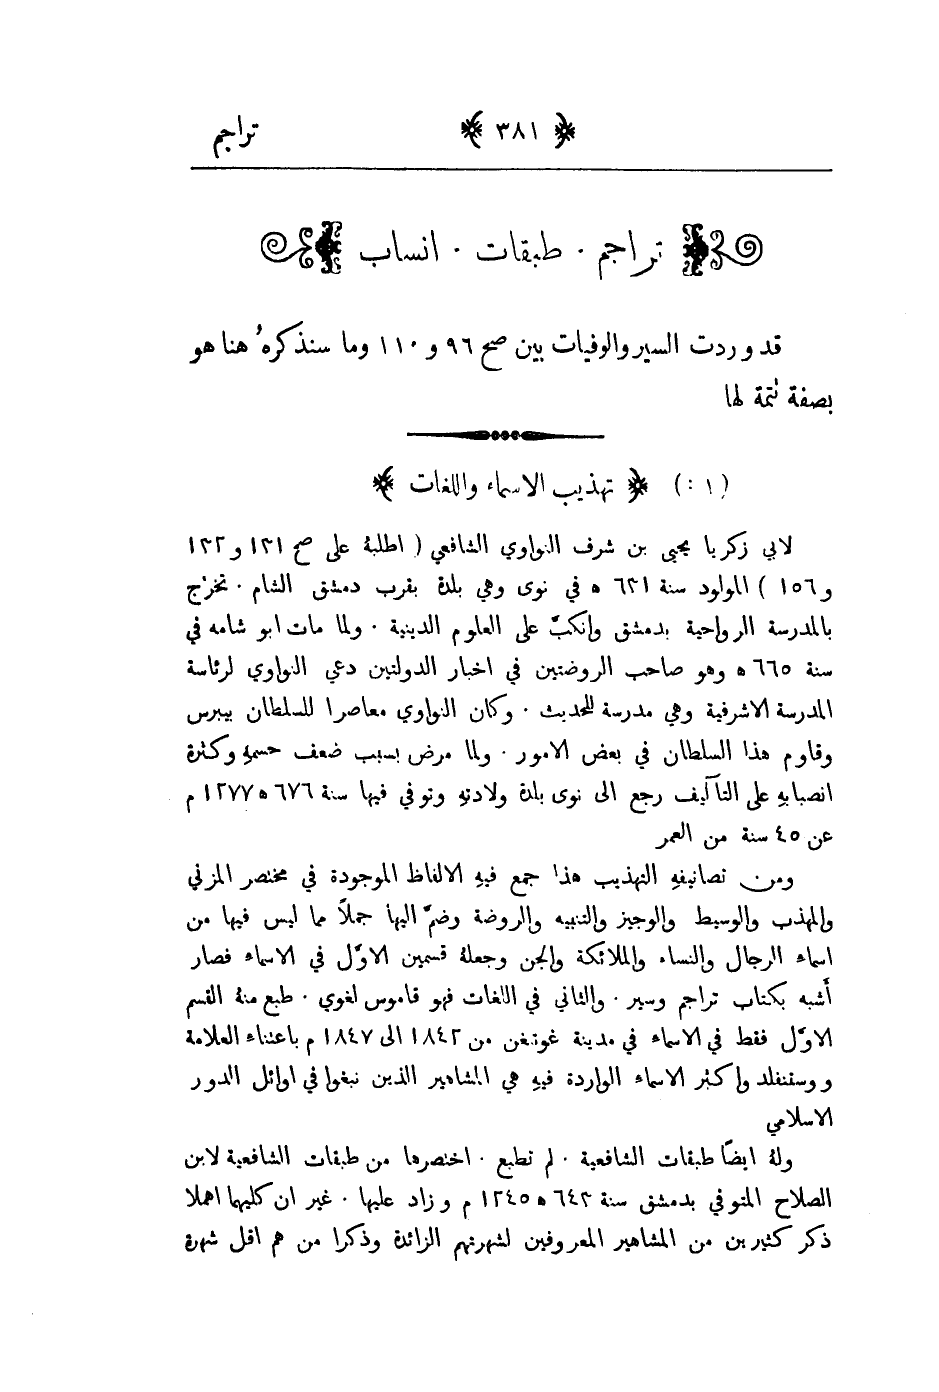 تراجم ﴿ ٣٨١ ﴾
تراجم · طبقات · انساب
قد وردت السير والوفيات بين صح ٩٦ و ١١٠ وما سنذكرهُ هنا هو
بصفة تتمة لها
(١ :) ﴿ تهذيب الاسماء واللغات ﴾
لابي زكريا يحيى بن شرف النواوي الشافعي ( اطلبهُ على صح ١٣١ و ١٣٢
و ١٥٦ ) المولود سنة ٦٣١ ه في نوى وهي بلدة بقرب دمشق الشام · تخرّج
بالمدرسة الرواحية بدمشق وانكبّ على العلوم الدينية · ولما مات ابو شامه في
سنة ٦٦٥ ه وهو صاحب الروضتين في اخبار الدولتين دعي النواوي لرئاسة
المدرسة الاشرفية وهي مدرسة للحديث · وكان النواوي معاصرا للسلطان بيبرس
وقاوم هذا السلطان في بعض الامور · ولما مرض بسبب ضعف جسمهِ وكثرة
انصبابهِ على التآليف رجع الى نوى بلدة ولادتهِ وتوفي فيها سنة ٦٧٦ ه ١٢٧٧ م
عن ٤٥ سنة من العمر
ومن تصانيفهِ التهذيب هذا جمع فيهِ الالفاظ الموجودة في مختصر المزني
والمهذب والوسيط والوجيز والتنبيه والروضة وضمّ اليها جملاً مما ليس فيها من
اسماء الرجال والنساء والملائكة والجن وجعلهُ قسمين الاوّل في الاسماء فصار
أشبه بكتاب تراجم وسير · والثاني في اللغات فهو قاموس لغوي · طبع منهُ القسم
الاوّل فقط في الاسماء في مدينة غوتنغن من ١٨٤٢ الى ١٨٤٧ م باعتناء العلامة
ووستنفلد واكثر الاسماء الواردة فيهِ هي المشاهير الذين نبغوا في اوائل الدور
الاسلامي
ولهُ ايضًا طبقات الشافعية · لم تطبع · اختصرها من طبقات الشافعية لابن
الصلاح المتوفي بدمشق سنة ٦٤٣ ه ١٢٤٥ م وزاد عليها · غير ان كليهما اهملا
ذكر كثيرين من المشاهير المعروفين لشهرتهم الزائدة وذكرا من هم اقل شهرة